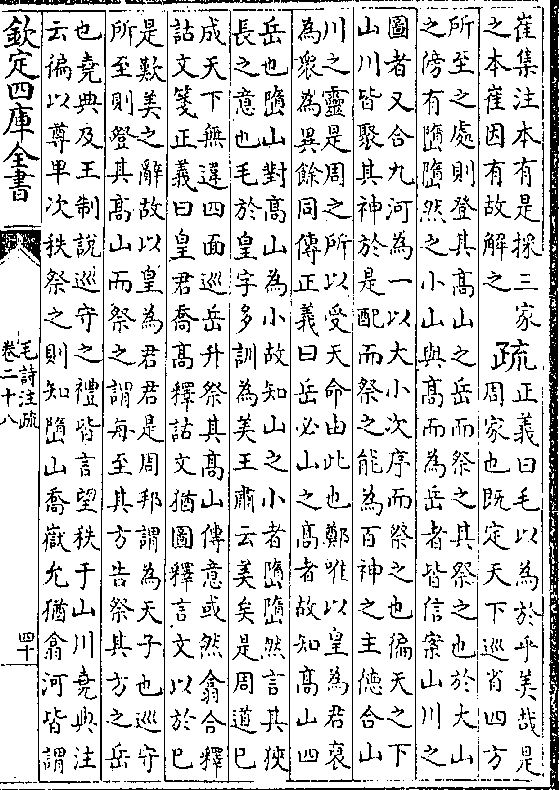 崔集注本有是採三家
之本崔因有故解之
疏
正義曰毛以為於乎美哉是
周家也既定天下巡省四方
所至之處則登其髙山之岳而祭之其祭之也於大山
之傍有墮墮然之小山與髙而為岳者皆信案山川之
圖者又合九河為一以大小次序而祭之也徧天之下
山川皆聚其神於是配而祭之能為百神之主徳合山
川之靈是周之所以受天命由此也鄭唯以皇為君裒
為衆為異餘同傳正義曰岳必山之髙者故知髙山四
岳也墮山對髙山為小故知山之小者墮墮然言其狹
長之意也毛於皇字多訓為美王肅云美矣是周道已
成天下無違四面巡岳升祭其髙山傳意或然翕合釋
詁文箋正義曰皇君喬髙釋詁文猶圖釋言文以於已
是歎美之辭故以皇為君君是周邦謂為天子也巡守
所至則登其髙山而祭之謂每至其方告祭其方之岳
也堯典及王制說巡守之禮皆言望秩于山川堯典注
云徧以尊卑次秩祭之則知墮山喬嶽允猶翕河皆謂
欽定四庫全書
毛詩注疏
卷二十八
四十